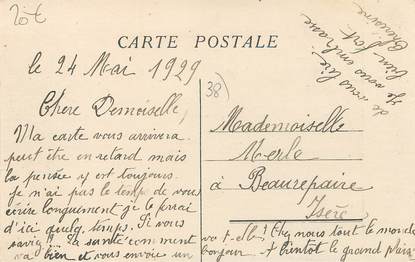 Zot
CARTE POSTALE
le 24 Mai 1929
38)
Chère Demoiselle,
Ma carte vous arrivera
peut être en retard mais
la pensée y est toujours
Je n'ai pas le temps de vous
écrire longuement je le ferai
d'ici quelq. temps. Si vous
saviez!! La santé comment
va bien et vous envoie un
Mademoiselle
Merle
à Beaurepaire
Isère
va t-elle! Chez nous tout le monde
bonjour. A bientôt le grand plaisir
de vous lire
Je vous embrasse
bien fort